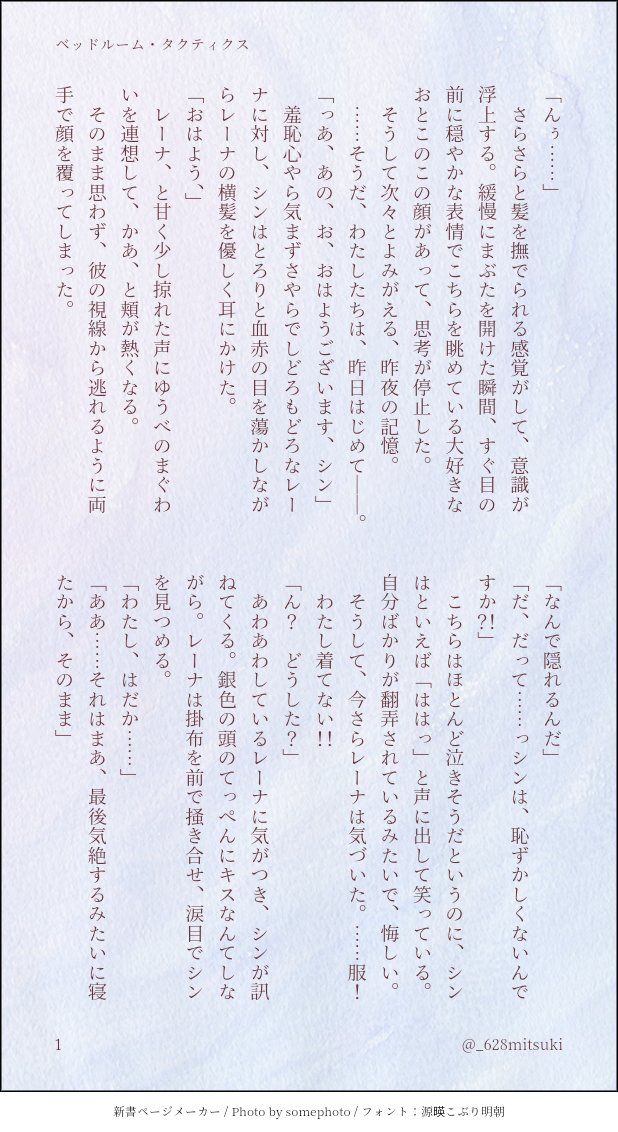 ベッドルーム・タクティクス
「んぅ……」
　さらさらと髪を撫でられる感覚がして、意識が
浮上する。緩慢にまぶたを開けた瞬間、すぐ目の
前に穏やかな表情でこちらを眺めている大好きな
おとこのこの顔があって、思考が停止した。
　そうして次々とよみがえる、昨夜の記憶。
　……そうだ、わたしたちは、昨日はじめて――。
「っあ、あの、お、おはようございます、シン」
　羞恥心やら気まずさやらでしどろもどろなレー
ナに対し、シンはとろりと血赤の目を蕩かしなが
らレーナの横髪を優しく耳にかけた。
「おはよう、」
　レーナ、と甘く少し掠れた声にゆうべのまぐわ
いを連想して、かあ、と頬が熱くなる。
　そのまま思わず、彼の視線から逃れるように両
手で顔を覆ってしまった。
「なんで隠れるんだ」
「だ、だって……っシンは、恥ずかしくないんで
すか?!」
　こちらはほとんど泣きそうだというのに、シン
はといえば「ははっ」と声に出して笑っている。
自分ばかりが翻弄されているみたいで、悔しい。
　そうして、今さらレーナは気づいた。……服！
　わたし着てない!!
「ん？　どうした？」
　あわあわしているレーナに気がつき、シンが訊
ねてくる。銀色の頭のてっぺんにキスなんてしな
がら。レーナは掛布を前で掻き合せ、涙目でシン
を見つめる。
「わたし、はだか……」
「ああ……それはまあ、最後気絶するみたいに寝
たから、そのまま」
1
@_628mitsuki
新書ページメーカー / Photo by somephoto / フォント：源暎こぶり明朝